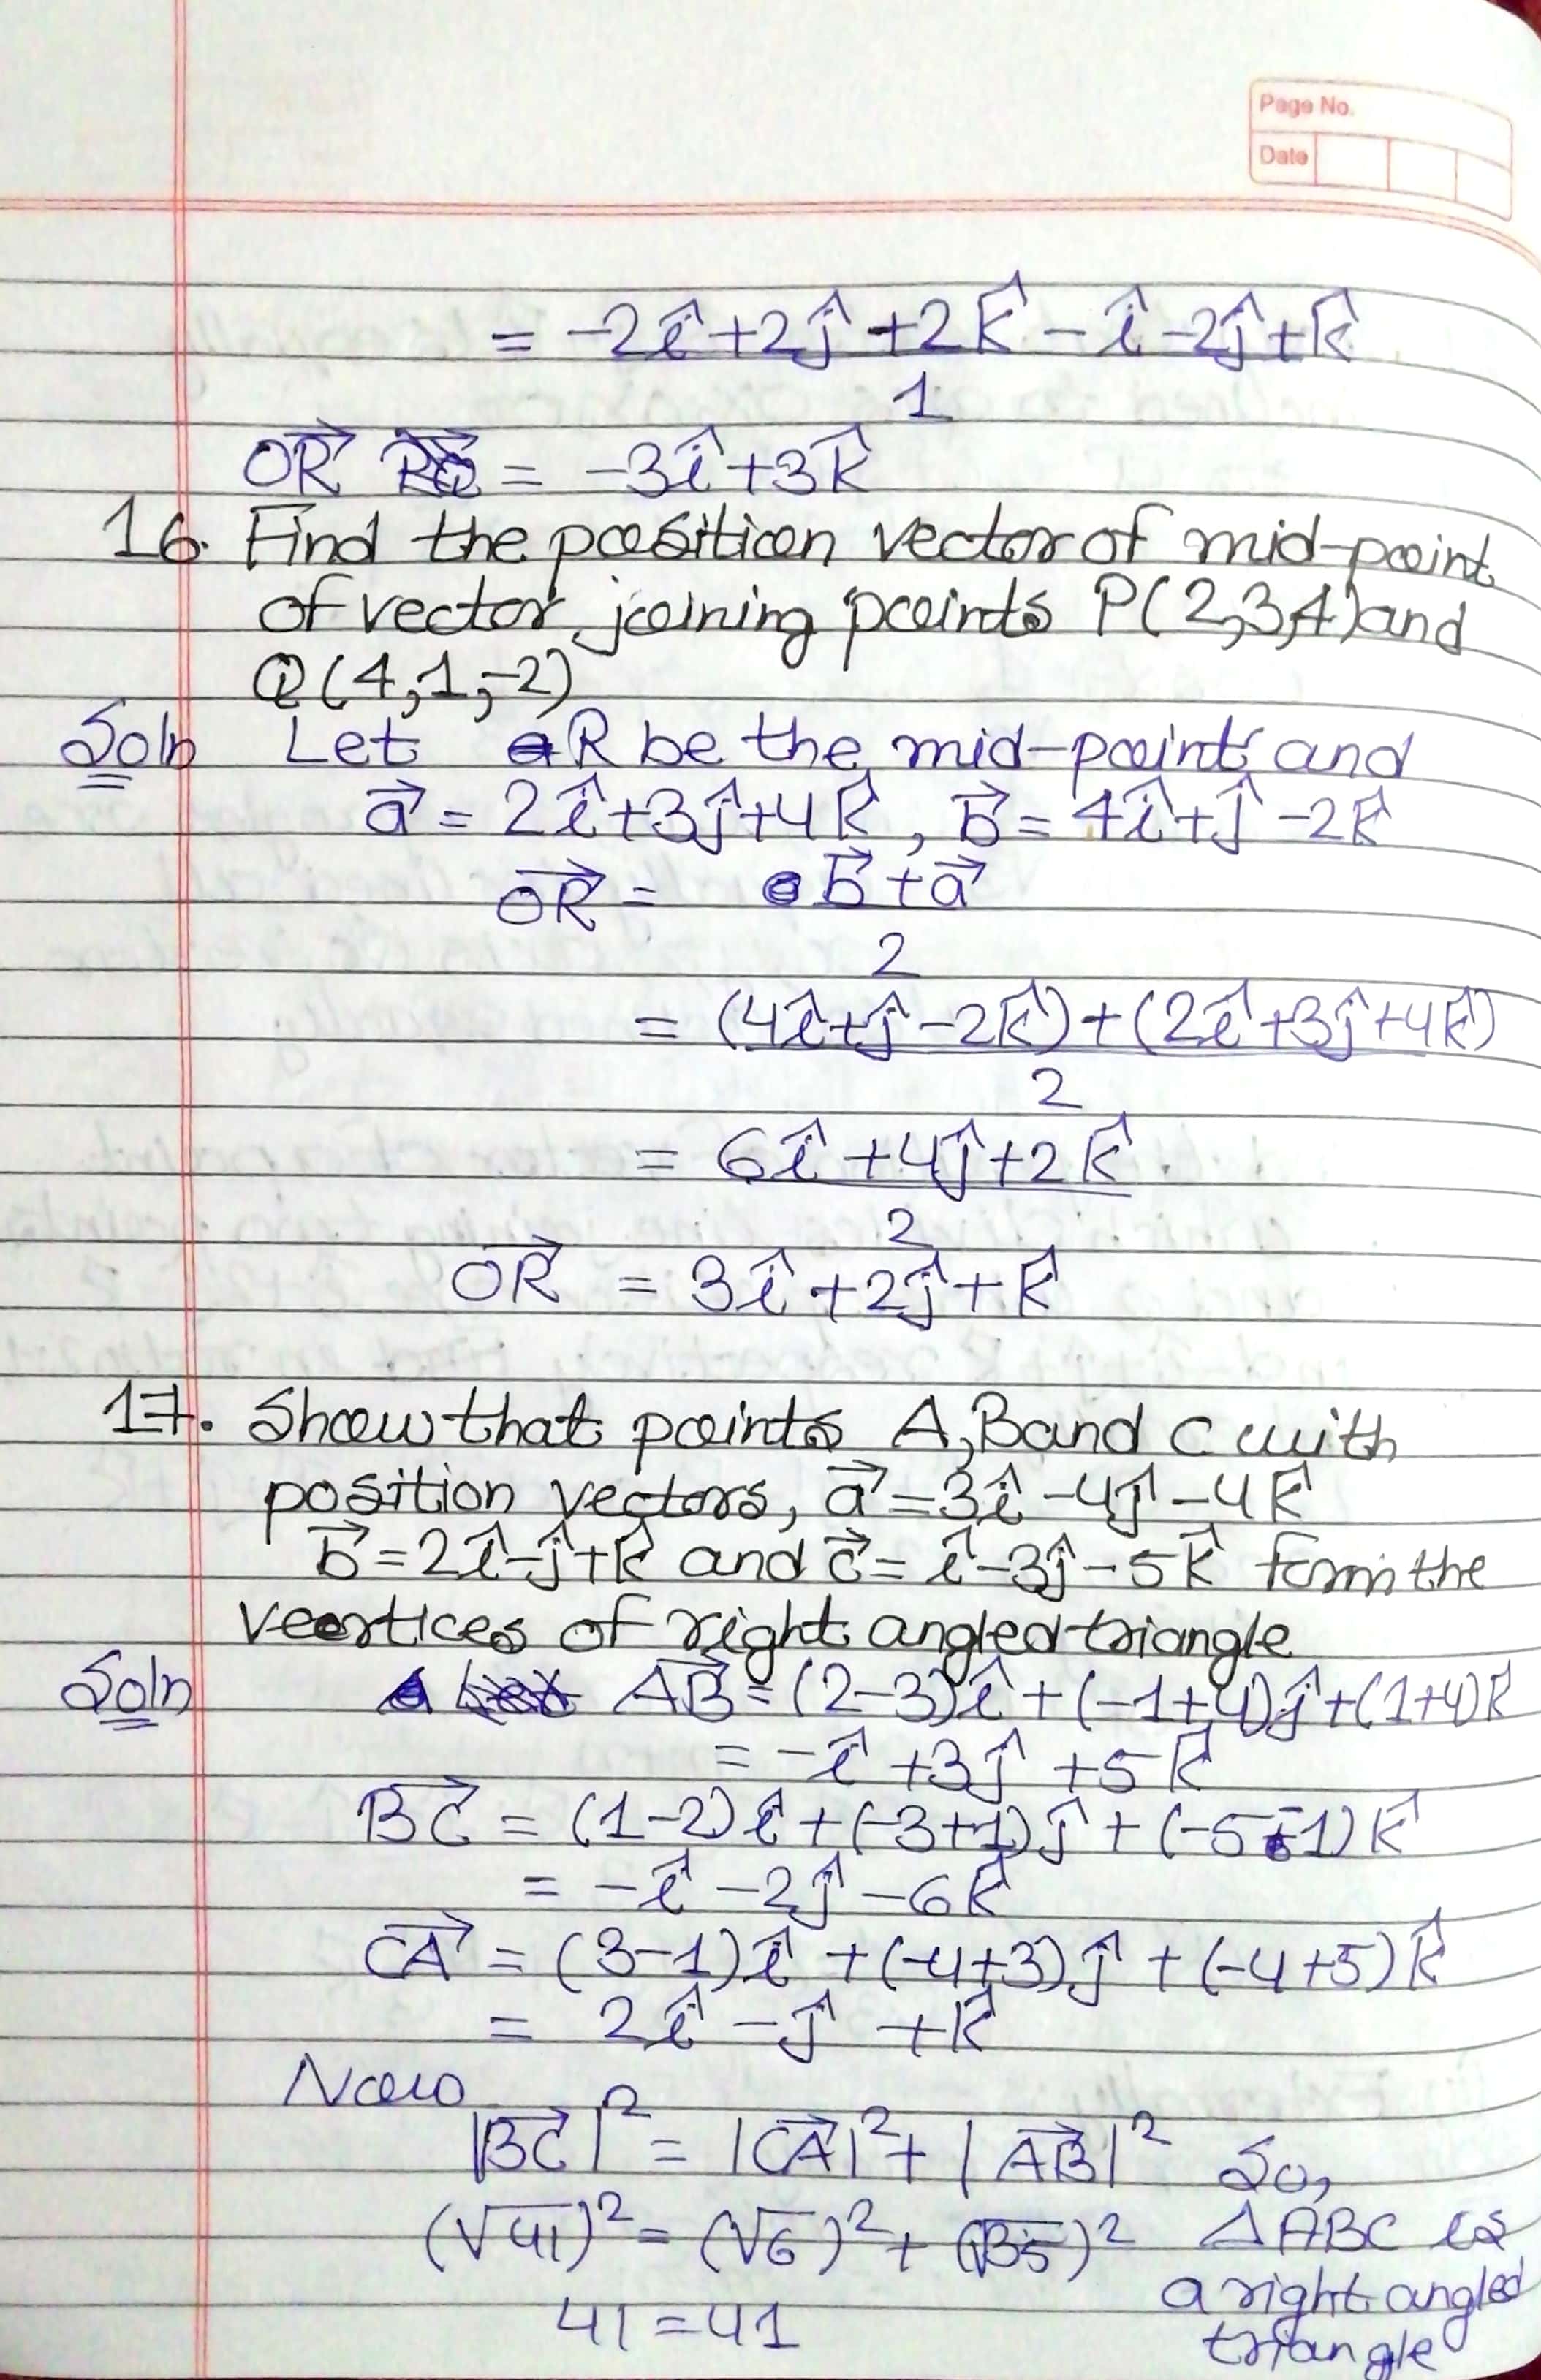 Page No.
Date
= -2î+2ĵ+2k̂-î-2ĵ+k̂
1
OR⃗ = -3î+3k̂
16. Find the position vector of mid-point
of vector joining points P(2,3,4) and
Q(4,1,-2)
Soln Let R be the mid-point and
a⃗ = 2î+3ĵ+4k̂, b⃗ = 4î+ĵ-2k̂
OR⃗ = b⃗+a⃗
2
= (4î+ĵ-2k̂)+(2î+3ĵ+4k̂)
2
= 6î+4ĵ+2k̂
2
OR⃗ = 3î+2ĵ+k̂
17. Show that points A, B and C with
position vectors, a⃗ = 3î-4ĵ-4k̂
b⃗ = 2î-ĵ+k̂ and c⃗ = î-3ĵ-5k̂ form the
vertices of right angled triangle
Soln AB⃗ = (2-3)î+(-1+4)ĵ+(1+4)k̂
= -î+3ĵ+5k̂
BC⃗ = (1-2)î+(-3+1)ĵ+(-5-1)k̂
= -î-2ĵ-6k̂
CA⃗ = (3-1)î+(-4+3)ĵ+(-4+5)k̂
= 2î-ĵ+k̂
Now
|BC⃗|² = |CA⃗|² + |AB⃗|² So,
(√41)² = (√6)² + (√35)² △ABC is
a right angled
41 = 41
triangle